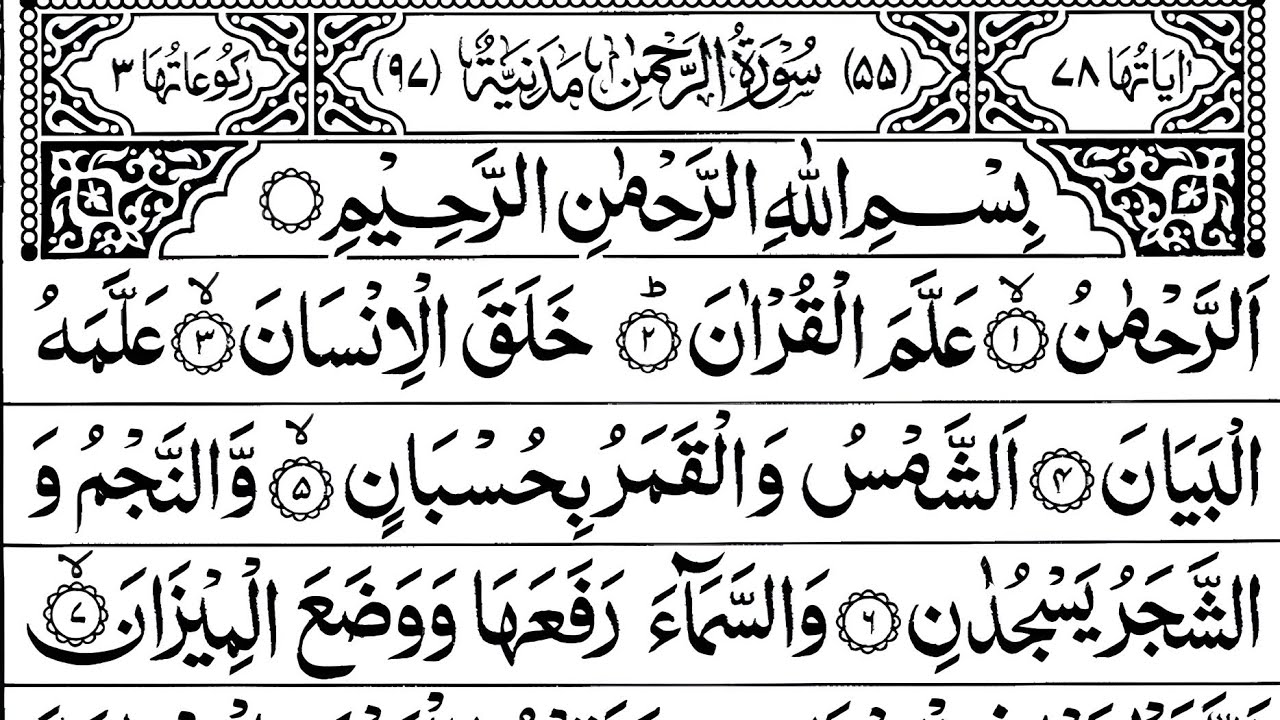 اٰيَاتُهَا ٧٨ (٥٥) سُوْرَةُ الرَّحْمٰنِ مَدَنِيَّةٌ (٩٧) رَكُوْعَاتُهَا ٣
بِسْمِ اللّٰهِ الرَّحْمٰنِ الرَّحِيْمِ
اَلرَّحْمٰنُ ۙ‏﴿۱﴾ عَلَّمَ الْقُرْاٰنَ ؕ‏﴿۲﴾ خَلَقَ الْاِنْسَانَ ۙ‏﴿۳﴾ عَلَّمَهُ
الْبَيَانَ ﴿۴﴾ اَلشَّمْسُ وَالْقَمَرُ بِحُسْبَانٍ ۙ‏﴿۵﴾ وَّالنَّجْمُ وَ
الشَّجَرُ يَسْجُدٰنِ ﴿۶﴾ وَالسَّمَآءَ رَفَعَهَا وَوَضَعَ الْمِيْزَانَ ۙ‏﴿۷﴾